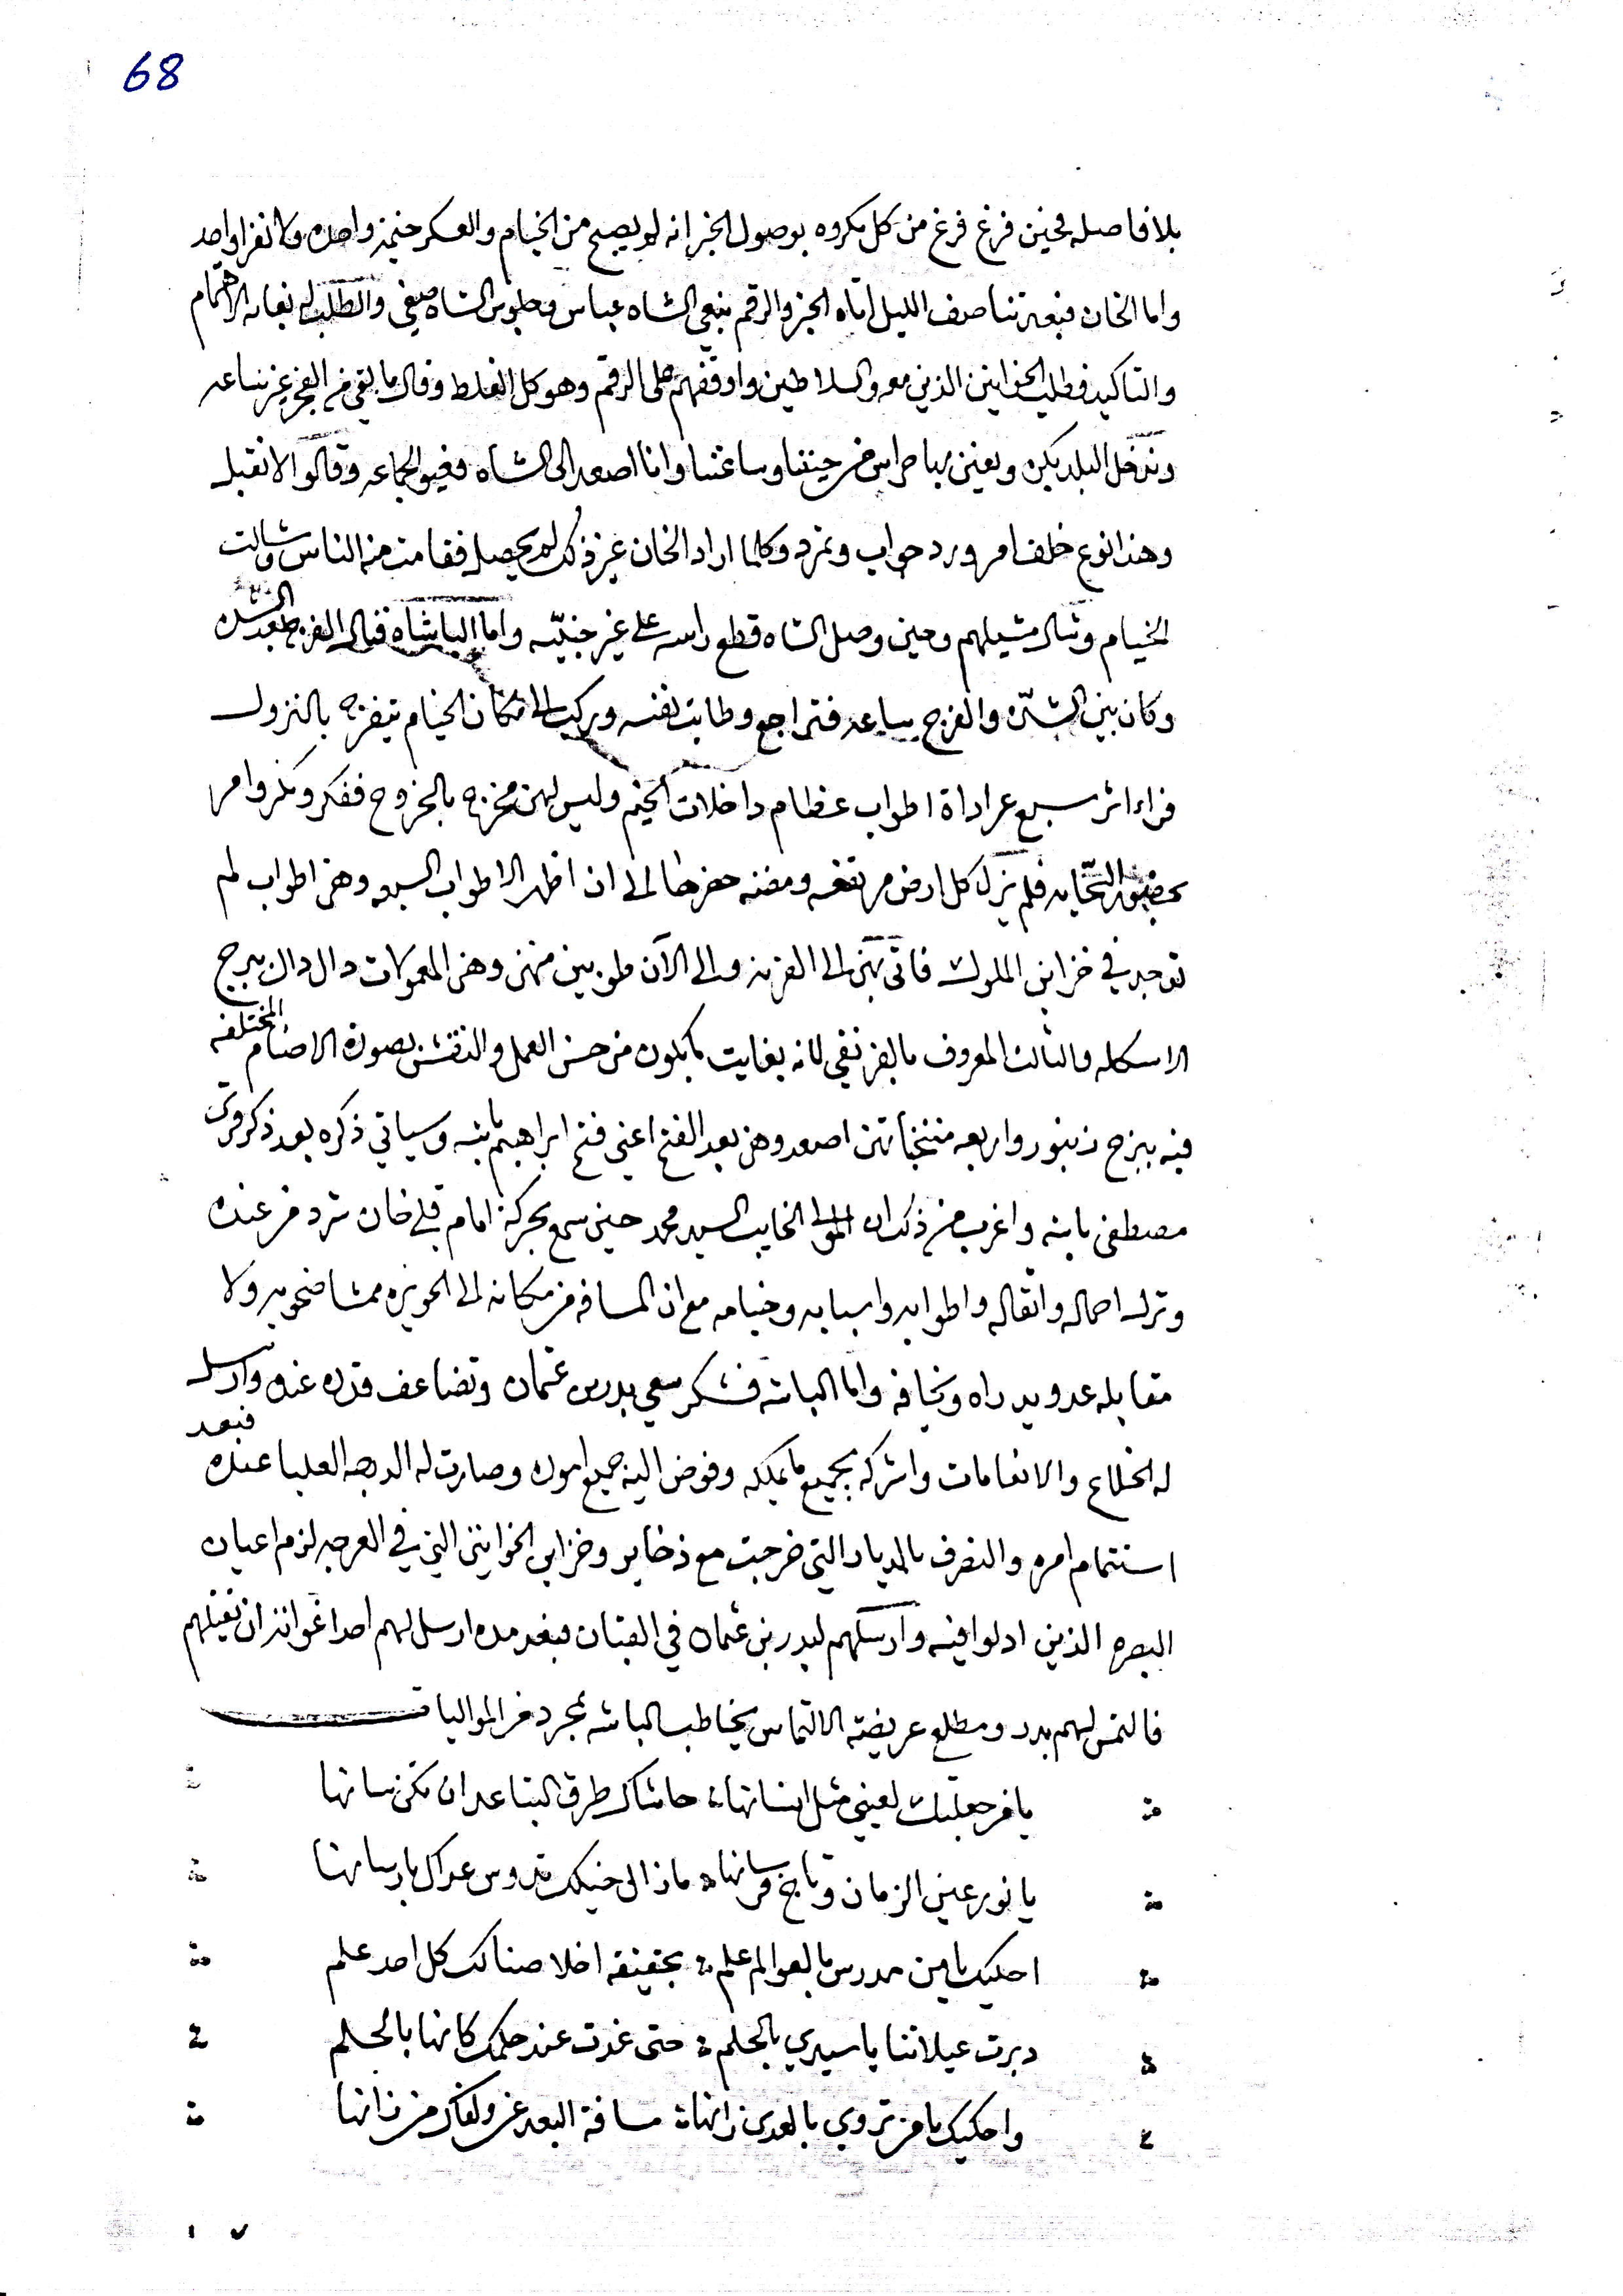 68
بلا فاصله فحين فرغ فرغ من كل مكروه بوصول الخبر انه لم يصبح من الخيام والعسكر خيمة واحده ولا نفرا واحد
واما الخان فبعد تناصف الليل اتاه الخبر والرقم بنعي الشاه عباس وجلوس الشاه صفي والطلب له بغاية الاهتمام
والتاكيد فطلب الخوانين الذين معه والسلاطين واوقفهم على الرقم وهو كل الغلط وقال ما بقي من الفجر غير ساعه
وندخل البلد بكره ونعين بها حراس من حيننا وساعتنا وانا اصعد الى الشاه فغيو الجماعه وقالوا لا نقبل
وهذا نوع خلف امر ورد جواب وتمرد وكلما اراد الخان غير ذلك لم يحصل فقامت من الناس وشالت
الخيام وشال مشيلهم وحين وصل الشاه قطع راسه على غير جنيّه واما الباشاه فنال الفرج بعد الشده
وكان بين الشدّه والفرج ساعه فتراجع وطابت نفسه وركب الى مكان الخيام يتفرج بالنزول
فراء اثر سبع عراداة اطواب عظام داخلات الخيم وليس لهن مخرج بالخروج ففكر ومكر وامر
بحضور فلم يزل كل ارض مرتفعه ومضنه حفرها الى ان اظهر الاطواب السبعه وهن اطواب لم
توجد في خزاين الملوك فاتى بهن الى القرنه والى الآن طوبين منهن وهن المعمولات دال دال ببرج
الاسكله والثالث المعروف بالفرنقي لانه بغايت ما يكون من حسن العمل والنقش بصورة الاصنام المختلفه
فيه ببرج زنبور واربعه منتخباتهن اصعدوهن بعد الفتح اعني فتح ابراهيم باشه وسياتي ذكره بعد ذكر قره
مصطفى باشه واغرب من ذلك ان المولى الخايب السيد محمد حين سمع بحركة امام قلي خان شرد من عنده
وترك احماله واثقاله واطوابه واسبابه وخيامه مع ان المسافه من مكانه الى الحويزه ولا
مقابله عدو يراه ويخافه واما الباشه فشكر سعي بدر بن عثمان وتضاعف قدره عنده وارسل
له الخلاع والانعامات واشركه بجميع ما يملكه وفوض اليه جميع اموره وصارت له الدرجه العليا عنده فبعد
استتمام امره والتصرف بالديار التي خرجت مع ذخاير وخزاين الخوانين التي في العرجه لزم اعيان
البصره الذين ادلوا فيه وارسلهم لبدر بن عثمان في القبان فبعد مده ارسل لهم احدا ان يقتلهم
فالتمس لهم بدر ومطلع عريضته الالتماس يخاطب الباشه بمجرد من المواليات
يا من جعلتك لعيني مثل انسانها حاشاك طرق التباعد ان تكن سانها
يا نور عين الزمان وتاج فرسانها ماذا الى خيلك تدوس عداك بارسانها
احكيك يا من مدرس بالعوالم علم بحقيقه اخلاصنا لك كل احد علم
دبرت عيلاتنا يا سيدي بالحلم حتى غدت عند حلمك كانها بالحلم
واحكيك يا من تروي بالعدى زانها مسافة البعد عن ولفك من زانها